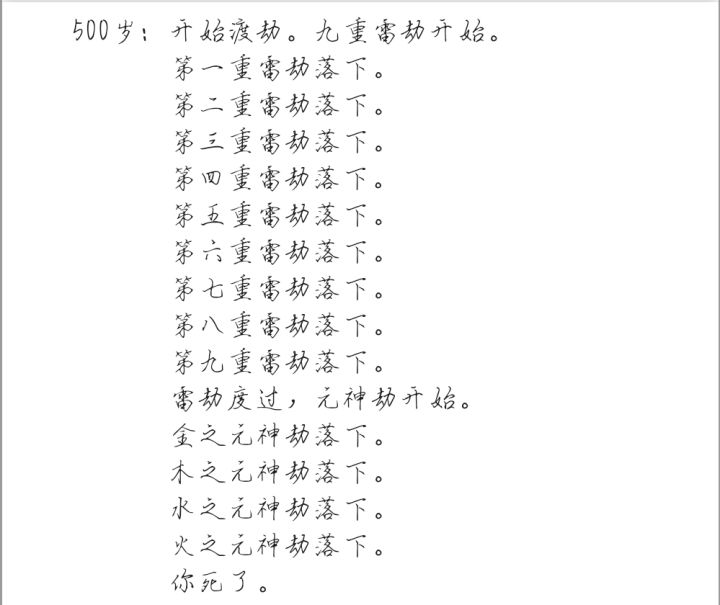 500岁：开始渡劫。九重雷劫开始。
第一重雷劫落下。
第二重雷劫落下。
第三重雷劫落下。
第四重雷劫落下。
第五重雷劫落下。
第六重雷劫落下。
第七重雷劫落下。
第八重雷劫落下。
第九重雷劫落下。
雷劫度过，元神劫开始。
金之元神劫落下。
木之元神劫落下。
水之元神劫落下。
火之元神劫落下。
你死了。